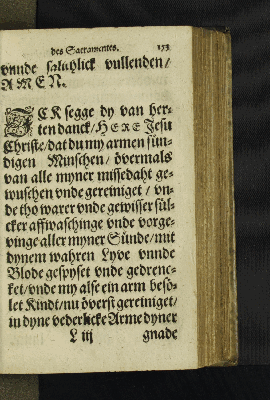 des Sacramentes. 153
vnnde salichlick vullenden/
AMEN.
ICK segge dy van her-
ten danck/HERE Jesu
Christe/dat du my armen sün-
digen Minschen/ övermals
van alle myner missedaht ge-
wuschen vnde gereiniget / vn-
de tho warer vnde gewisser sül-
cker affwaschinge vnde vorge-
vinge aller myner Sünde/mit
dynem wahren Lyve vnnde
Blode gespyset vnde gedrenc-
ket/vnde my alse ein arm beso-
let Kindt/nu överst gereiniget/
in dyne vederlicke Arme dyner
L iij gnade